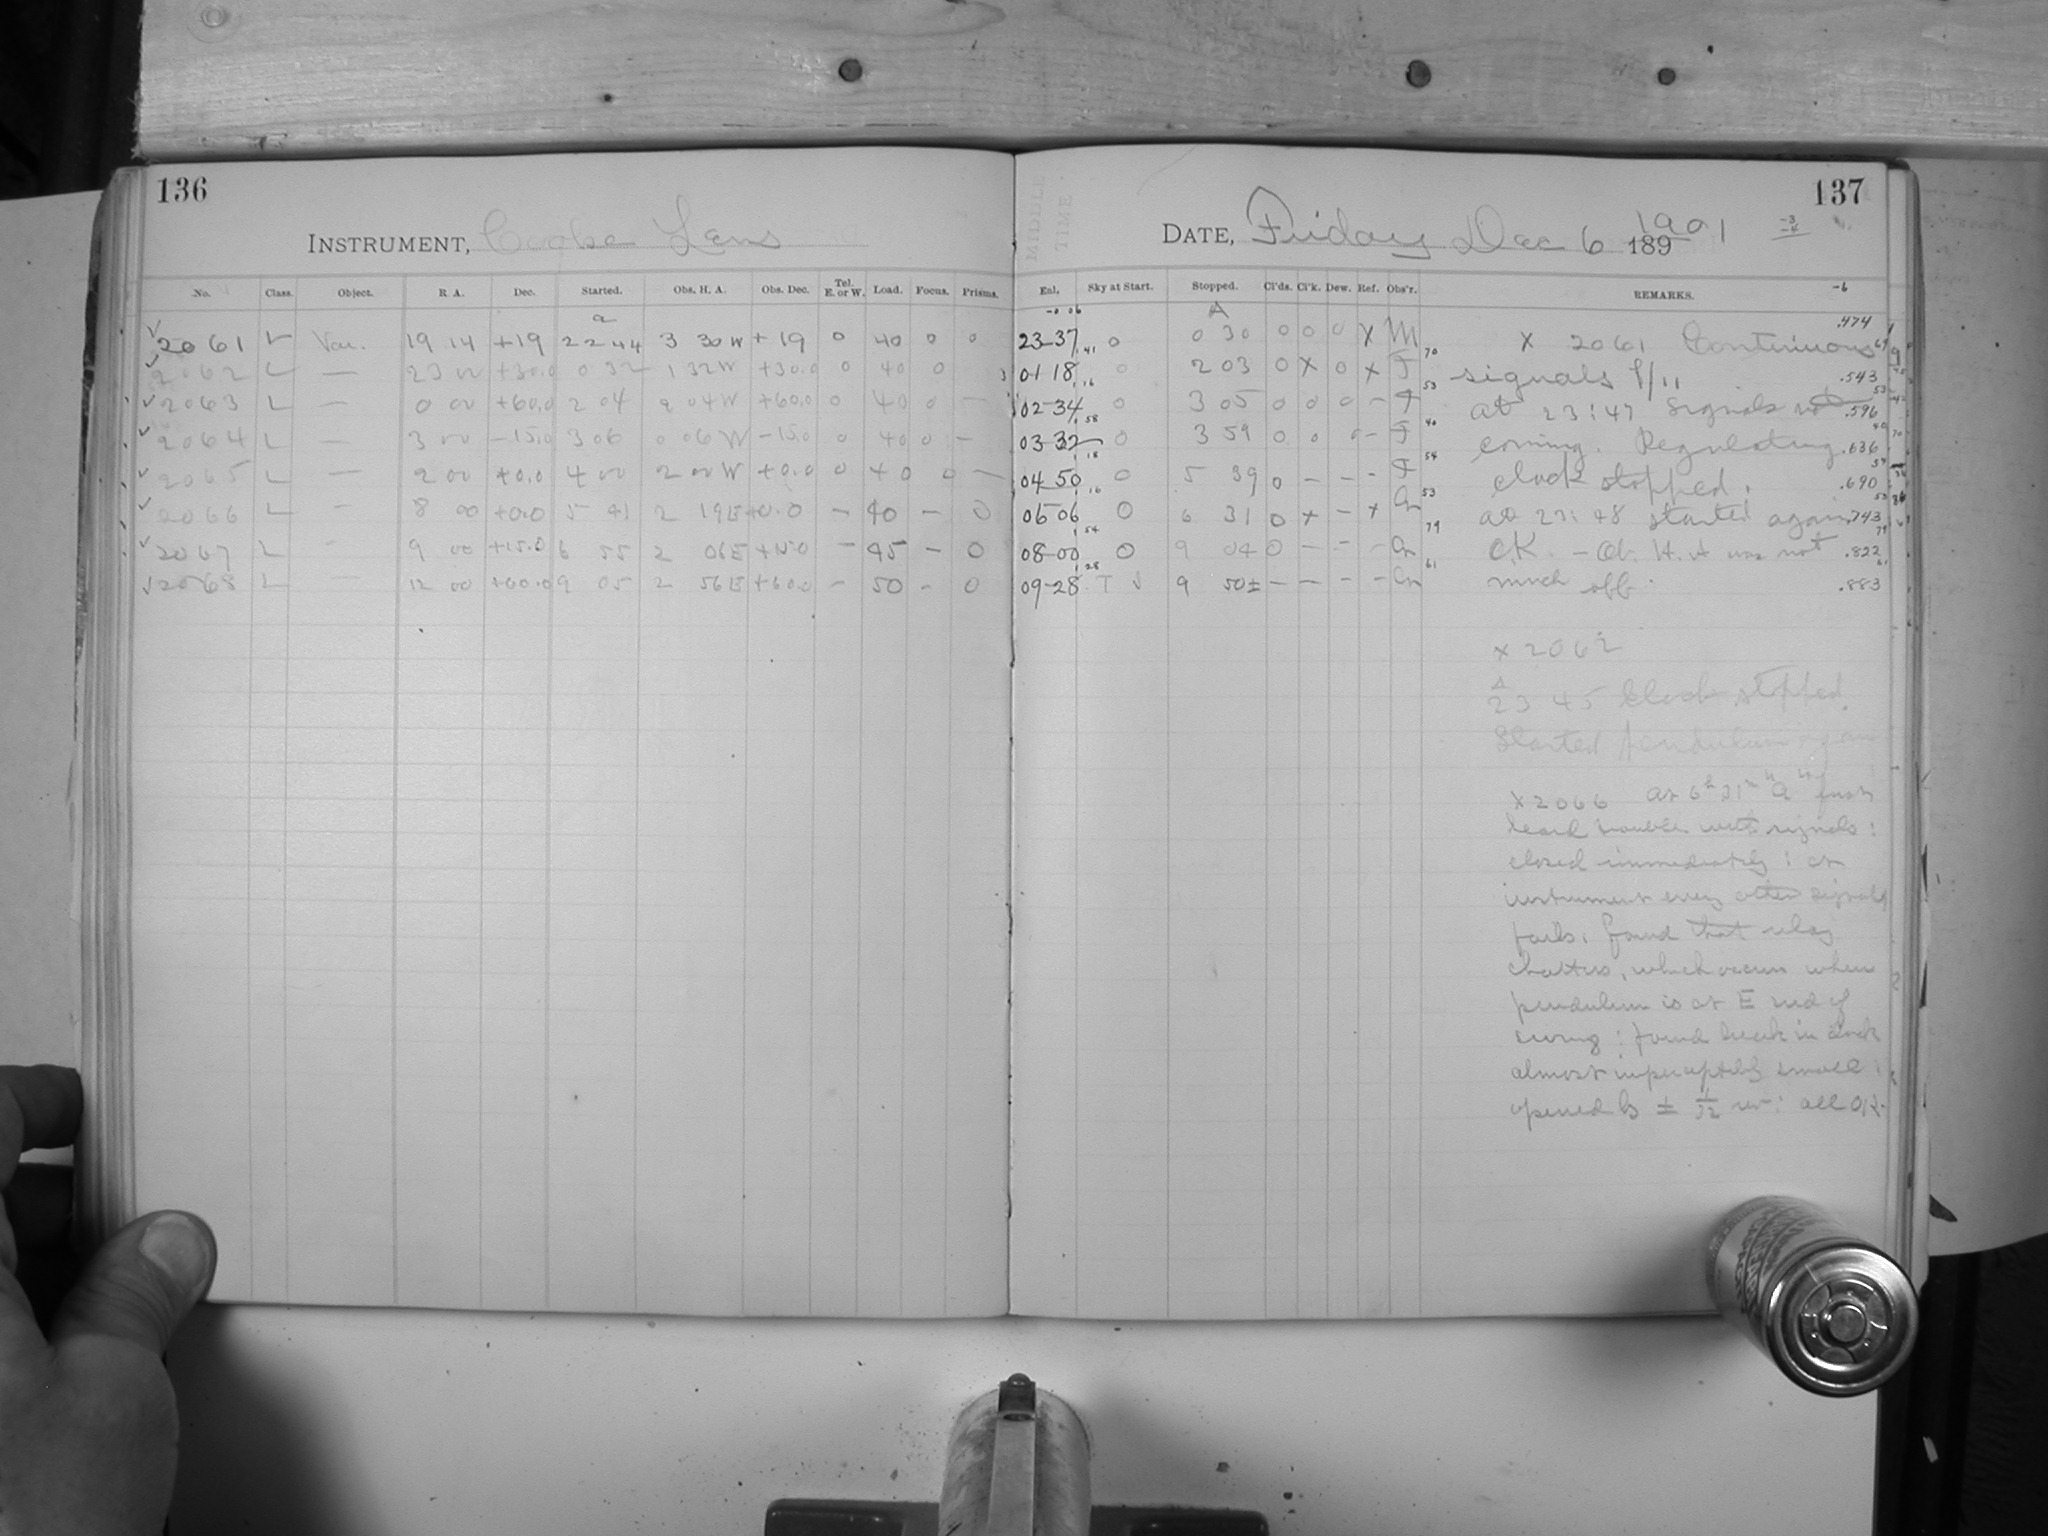 136
INSTRUMENT, Cooke Lens
No. Class. Object. R. A. Dec. Started. Obs. H. A. Obs. Dec. Tel. E. or W. Load. Focus. Prisms.
a
✓ 2061 L Var. 19 14 +19 22 44 3 30 W +19 0 40 0 0
✓ 2062 L — 23 00 +30.0 0 32 1 32 W +30.0 0 40 0
✓ 2063 L — 0 00 +60.0 2 04 2 04 W +60.0 0 40 0 —
✓ 2064 L — 3 00 −15.0 3 06 0 06 W −15.0 0 40 0 —
✓ 2065 L — 2 00 +0.0 4 00 2 00 W +0.0 0 40 0 —
✓ 2066 L — 8 00 +0.0 5 41 2 19 E +0.0 — 40 — 0
✓ 2067 L — 9 00 +15.0 6 55 2 06 E +15.0 — 45 — 0
✓ 2068 L — 12 00 +60.0 9 05 2 56 E +60.0 — 50 — 0
137
MIDDLE TIME
DATE, Friday Dec 6 1901 189
Enl. Sky at Start. Stopped. Cl'ds. Cl'k. Dew. Ref. Obs'r. REMARKS.
−6
A
23-37 0 0 30 0 0 0 X M
01-18 0 2 03 0 X 0 X F
02-34 0 3 05 0 0 0 – F
03-32 0 3 59 0 0 0 – F
04-50 0 5 39 0 – – – F
06-06 0 6 31 0 X – X
08-00 0 9 04 0 – – –
09-28 9 50± – – – –
x 2061 Continuous .474
signals f/11 .543
at 23:47 signals not .596
coming. Regulating .636
clock stopped. .690
at 23:48 started again .743
OK. – Ob. H. A was not .822
much off. .883
x 2062
A
23 45 Clock stopped.
Started pendulum again
x 2066 at 6h 31m "A"
heard trouble with signals:
closed immediately: at
instrument every other signal
fails: found that relay
chatters, which occurs when
pendulum is at E end of
swing: found break in clock
almost imperceptibly small:
opened by ± 1/32 rev: all O.K.